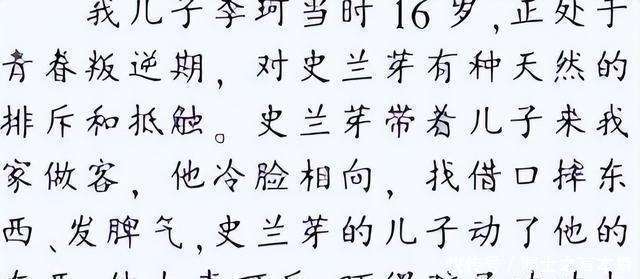 我儿子李珂当时16岁,正处于
青春叛逆期，对史兰芽有种天然的
排斥和抵触。史兰芽带着儿子来我
家做客，他冷脸相向，找借口摔东
西、发脾气,史兰芽的儿子动了他的